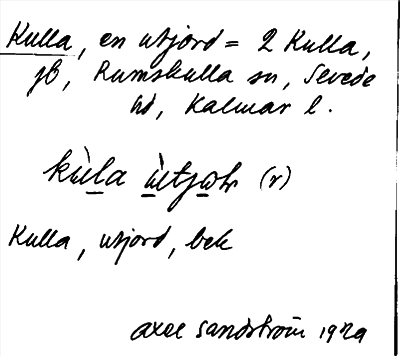 Kulla, en utjord = 2 Kulla,
jb, Rumskulla sn, Sevede
hd, Kalmar l.
kùla ùtjoɷr (r)
Kulla, utjord, bek
Axel Sandström 1929